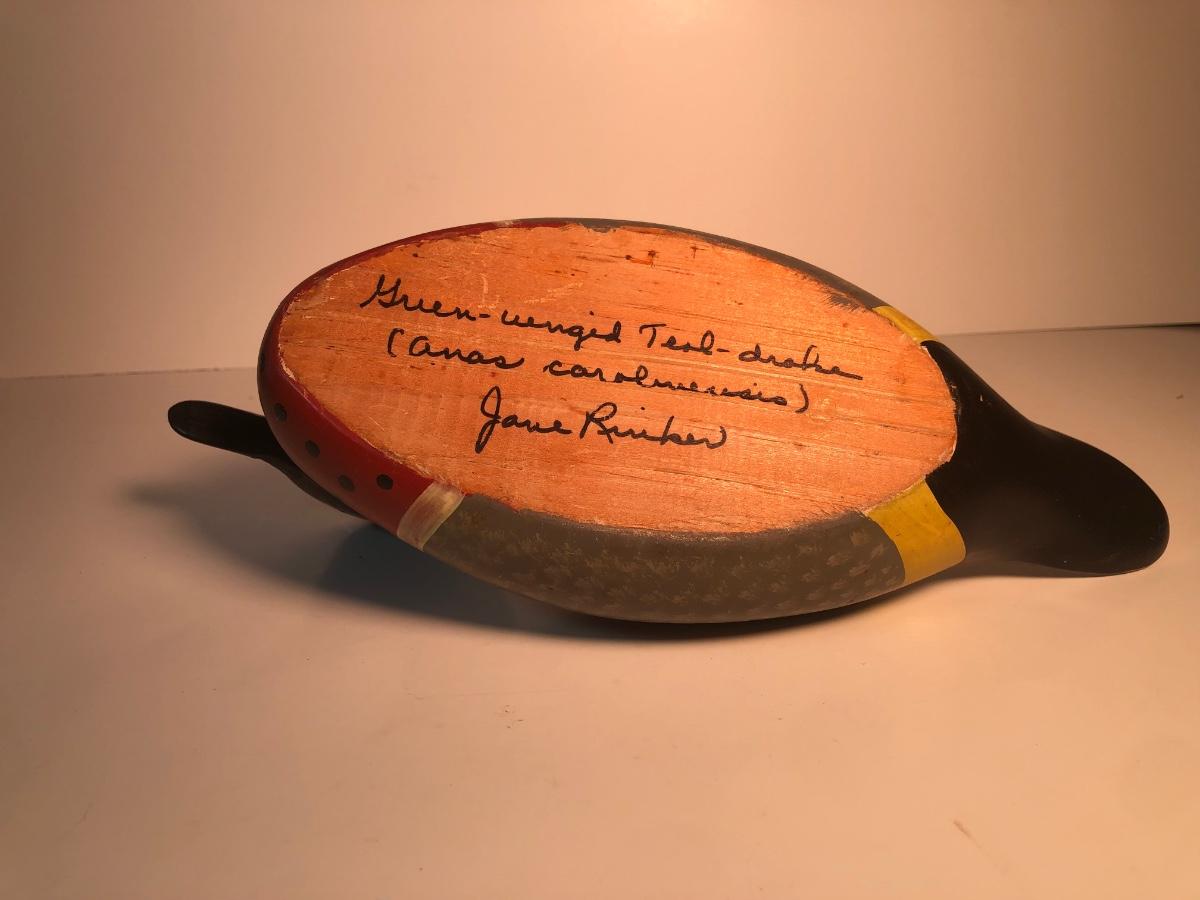 Green-wenged Teal-drake
(anas carolinensis)
Jane Rinker